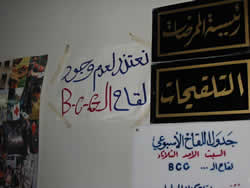 رئيسة الممرضات
التلقيحات
نعتذر لعدم وجود
لقاح الـ B.C.G
جدول اللقاح الأسبوعي
السبت الاحد الثلاثاء
لقاح الـ... BCG